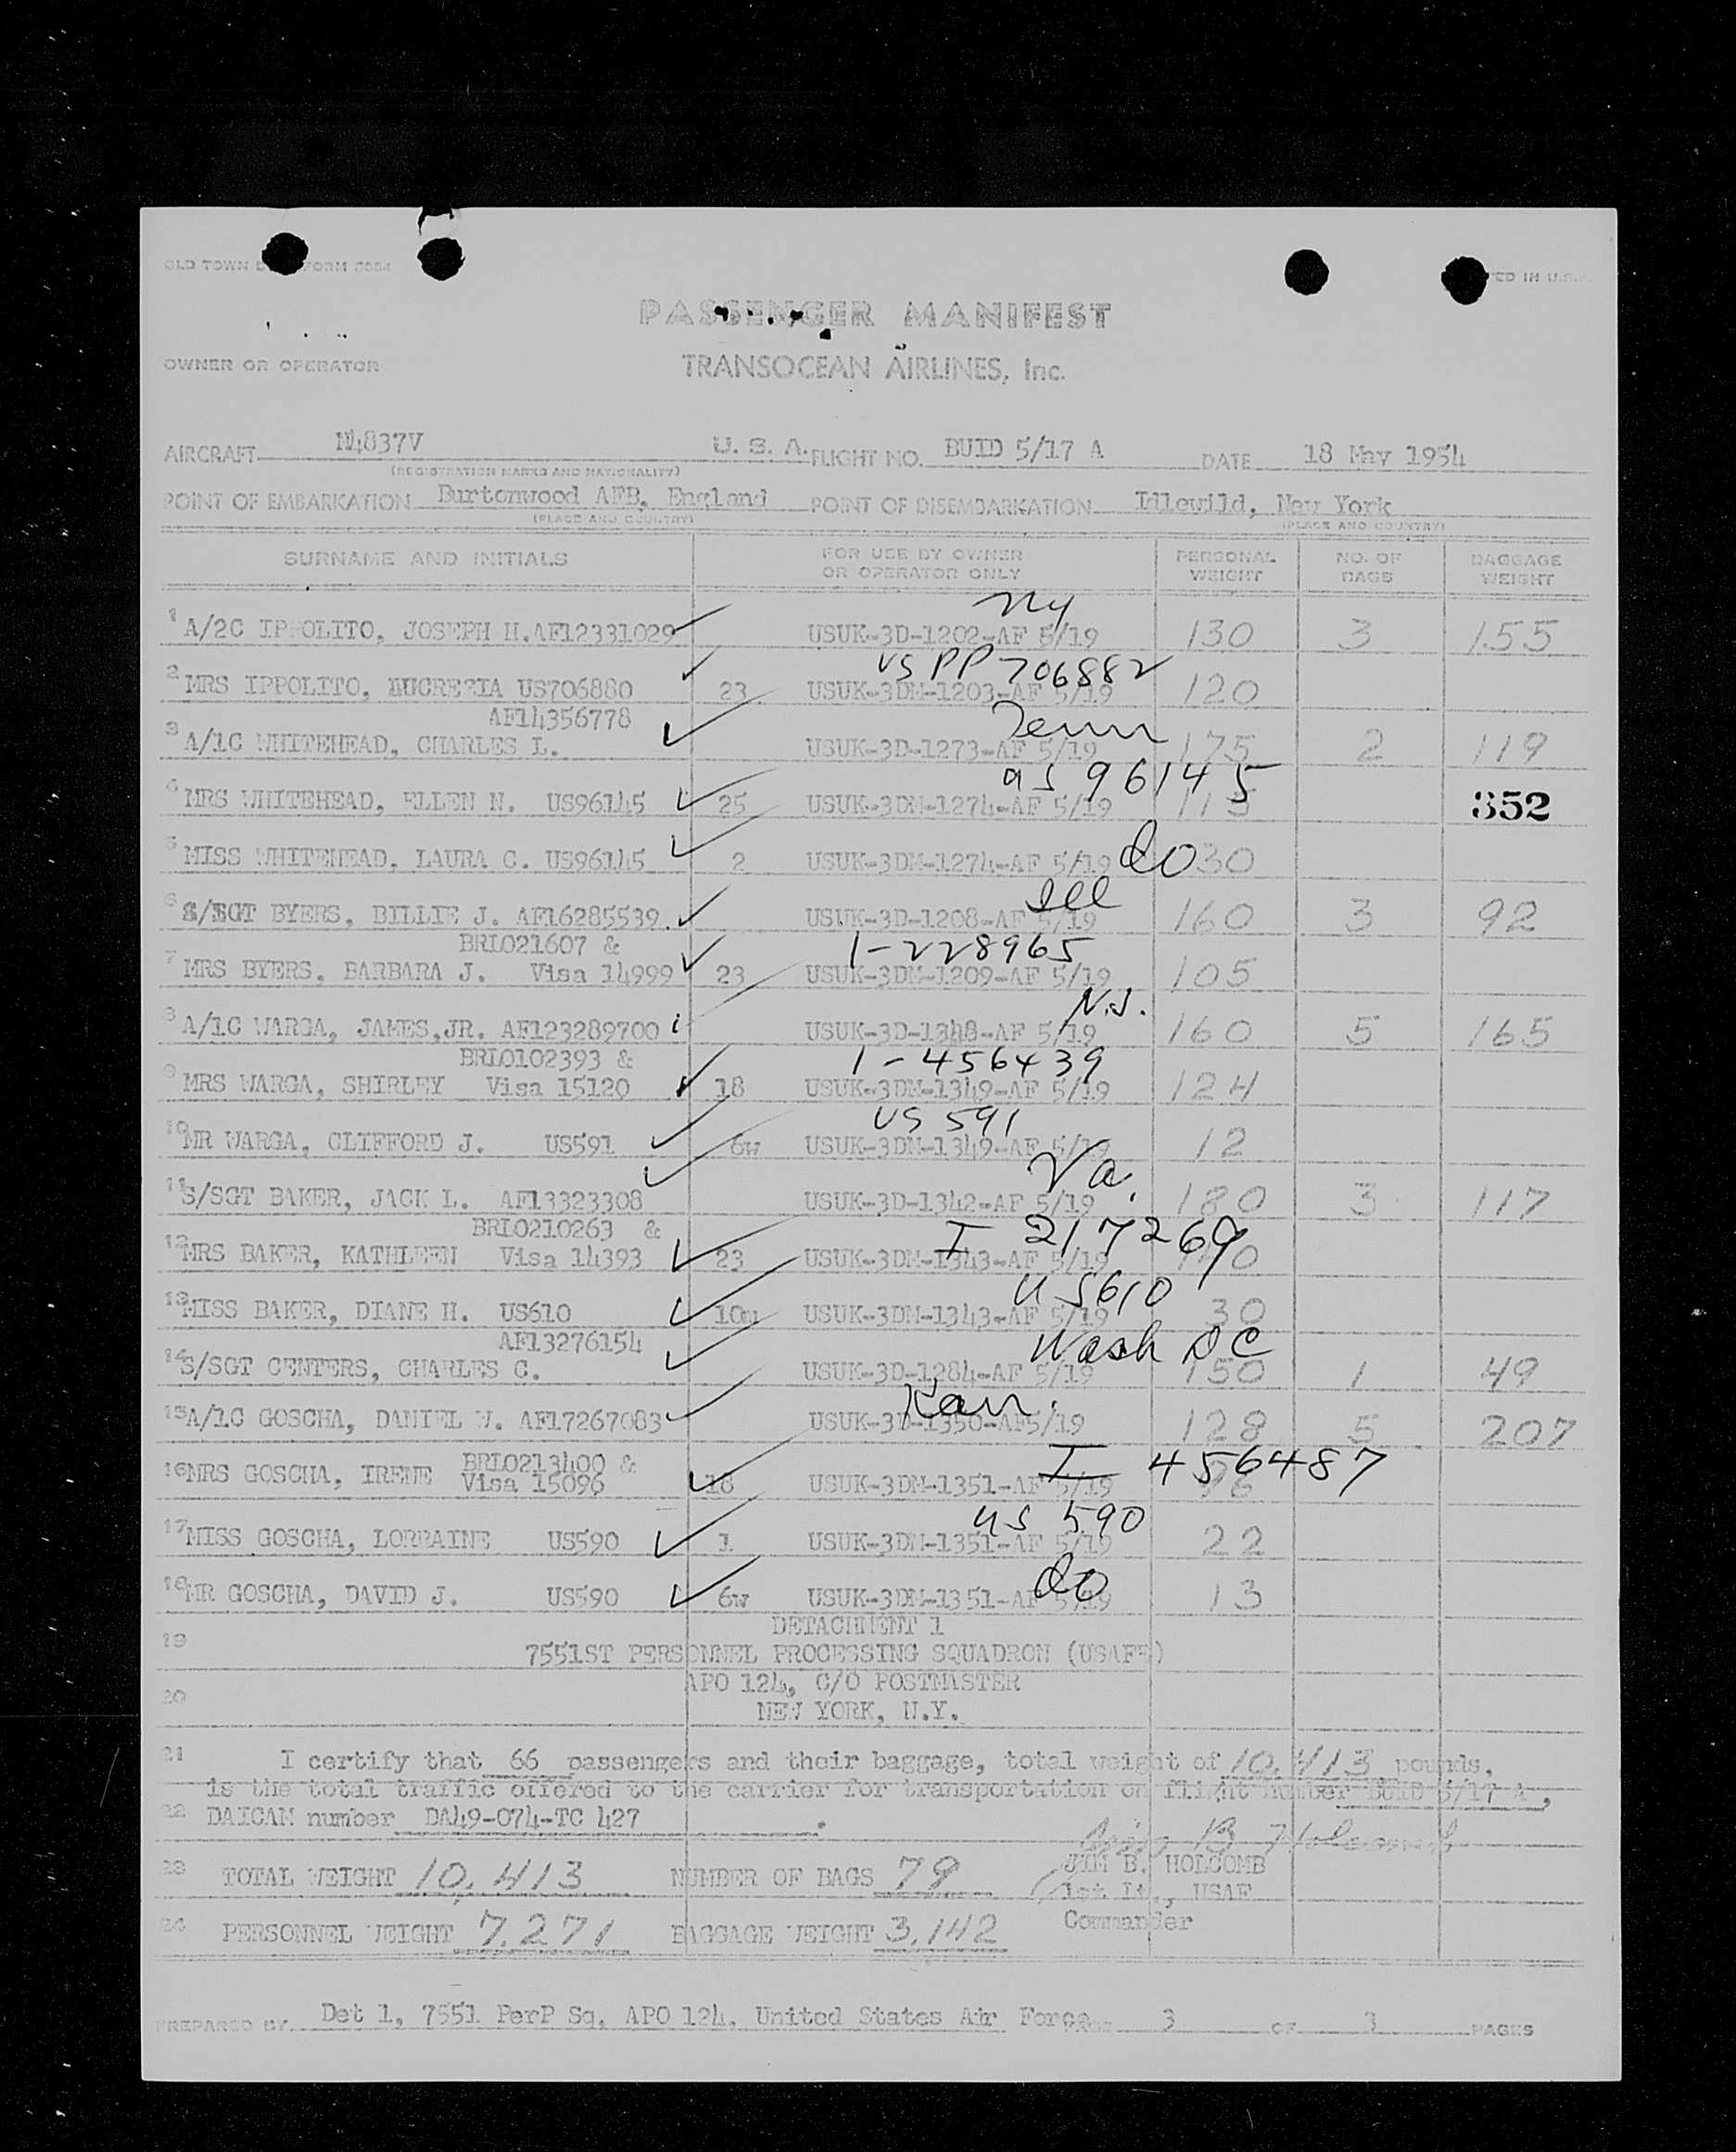 PASSENGER MANIFEST
OWNER OR OPERATOR TRANSOCEAN AIRLINES, Inc.
AIRCRAFT N4837V U. S. A. FLIGHT NO. BUID 5/17 A DATE 18 May 1954
(REGISTRATION MARKS AND NATIONALITY)
POINT OF EMBARKATION Burtonwood AFB, England POINT OF DISEMBARKATION Idlewild, New York
(PLACE AND COUNTRY) (PLACE AND COUNTRY)
SURNAME AND INITIALS FOR USE BY OWNER OR OPERATOR ONLY PERSONAL WEIGHT NO. OF BAGS BAGGAGE WEIGHT
NY
1 A/2C IPPOLITO, JOSEPH H. AF12331029 USUK-3D-1202-AF 5/19 130 3 155
US PP 706882
2 MRS IPPOLITO, LUCREZIA US706880 23 USUK-3DM-1203-AF 5/19 120
AF14356778 Tenn
3 A/1C WHITEHEAD, CHARLES L. USUK-3D-1273-AF 5/19 175 2 119
US 96145
4 MRS WHITEHEAD, ELLEN N. US96145 25 USUK-3DM-1274-AF 5/19 115 352
5 MISS WHITEHEAD, LAURA C. US96145 2 USUK-3DM-1274-AF 5/19 do 30
Ill
6 S/SGT BYERS, BILLIE J. AF16285539 USUK-3D-1208-AF 5/19 160 3 92
BRLO21607 & 1-228965
7 MRS BYERS, BARBARA J. Visa 14999 23 USUK-3DM-1209-AF 5/19 105
N.J.
8 A/1C WARGA, JAMES,JR. AF123289700 USUK-3D-1348-AF 5/19 160 5 165
BRLO102393 & 1-456439
9 MRS WARGA, SHIRLEY Visa 15120 18 USUK-3DM-1349-AF 5/19 124
US 591
10 MR WARGA, CLIFFORD J. US591 6w USUK-3DM-1349-AF 5/19 12
Va.
11 S/SGT BAKER, JACK L. AF13323308 USUK-3D-1342-AF 5/19 180 3 117
BRLO210263 & I 217269
12 MRS BAKER, KATHLEEN Visa 14393 23 USUK-3DM-1343-AF 5/19
US610
13 MISS BAKER, DIANE H. US610 10m USUK-3DM-1343-AF 5/19 30
AF13276154 Wash DC
14 S/SGT CENTERS, CHARLES C. USUK-3D-1284-AF 5/19 150 1 49
Kan.
15 A/1C GOSCHA, DANIEL W. AF17267083 USUK-3D-1350-AF5/19 128 5 207
BRLO213400 & I 456487
16 MRS GOSCHA, IRENE Visa 15096 18 USUK-3DM-1351-AF 5/19
US 590
17 MISS GOSCHA, LORRAINE US590 1 USUK-3DM-1351-AF 5/19 22
do
18 MR GOSCHA, DAVID J. US590 6w USUK-3DM-1351-AF 5/19 13
DETACHMENT 1
19 7551ST PERSONNEL PROCESSING SQUADRON (USAFE)
APO 124, C/O POSTMASTER
20 NEW YORK, N.Y.
21 I certify that 66 passengers and their baggage, total weight of 10,413 pounds,
is the total traffic offered to the carrier for transportation on flight number BUID 5/17 A ,
22 DAICAM number DA49-074-TC 427 .
Jim B Holcomb
23 TOTAL WEIGHT 10,413 NUMBER OF BAGS 79 JIM B. HOLCOMB
1st Lt., USAF
24 PERSONNEL WEIGHT 7,271 BAGGAGE WEIGHT 3,142 Commander
PREPARED BY Det 1, 7551 PerP Sq, APO 124, United States Air Force 3 OF 3 PAGES